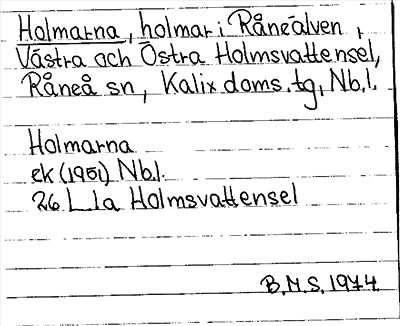 Holmarna, holmar i Råneälven,
Västra och Östra Holmsvattensel,
Råneå sn, Kalix doms.tg, Nb.l.
Holmarna
ek (1951) Nb.l.
26 L 1a Holmsvattensel
B.M.S. 1974